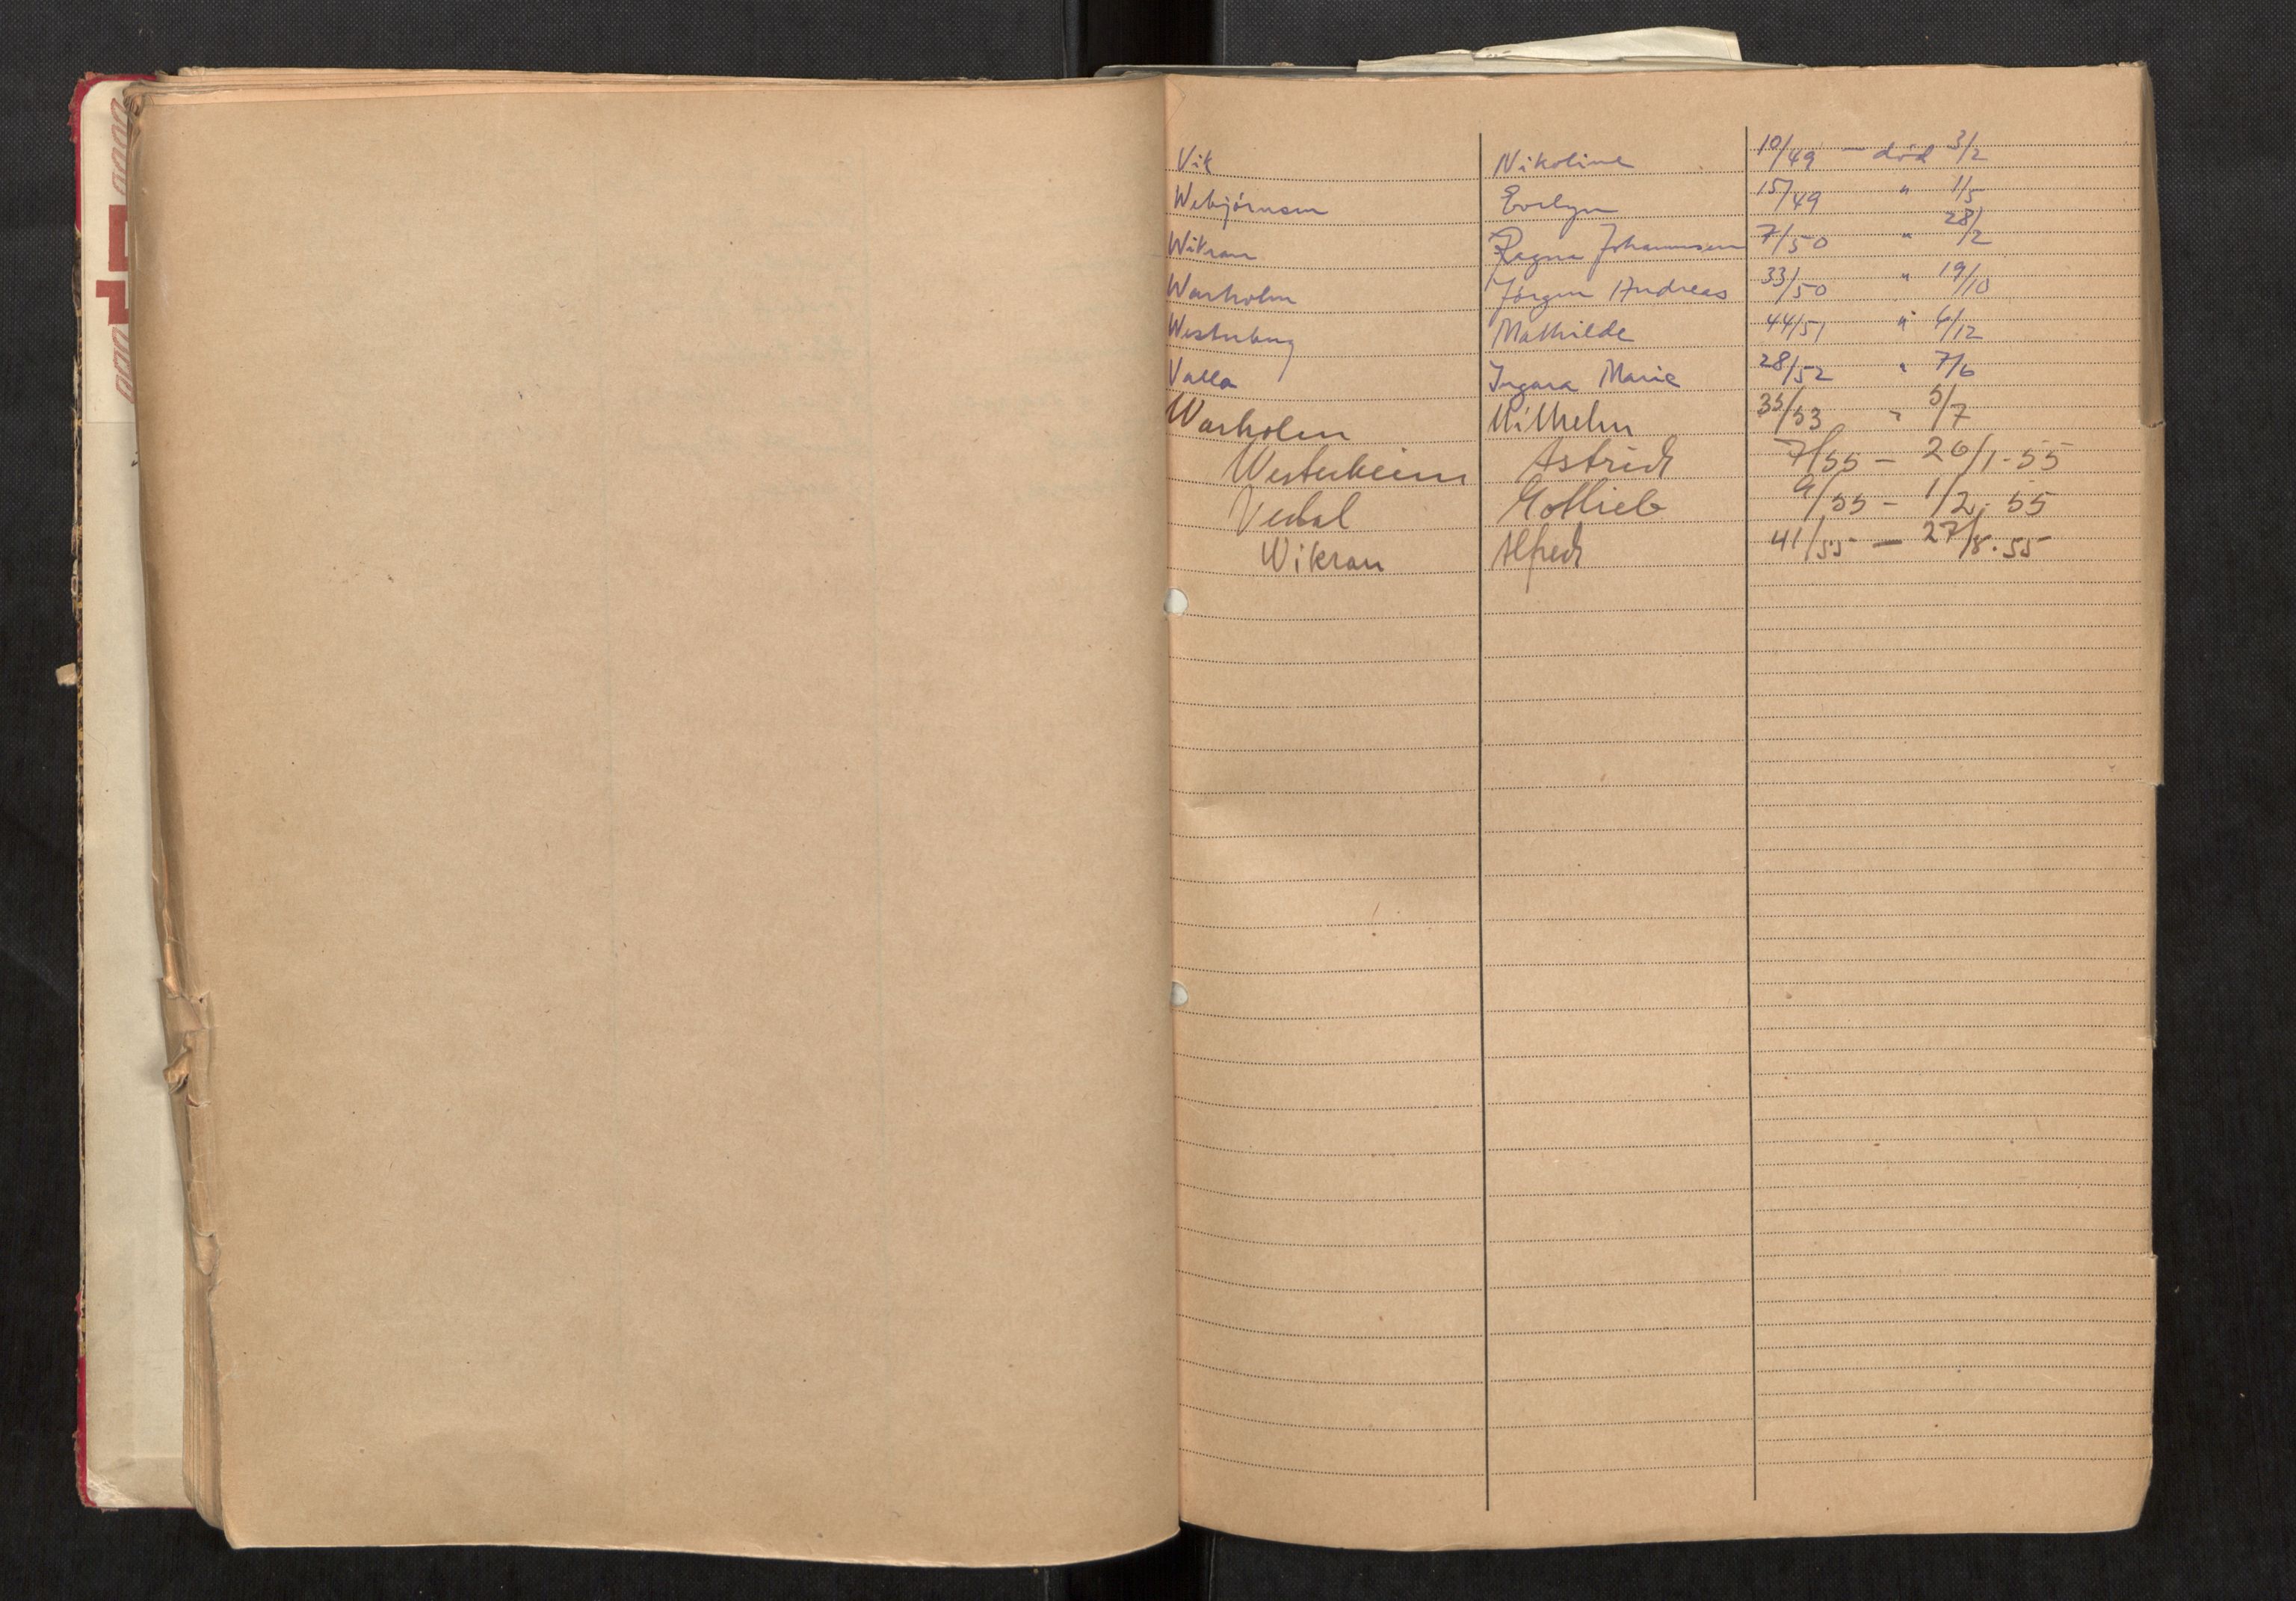 Vik Nikoline 10/49 — död 3/2
Webjörnsen Evelyn 15/49 " 1/5
Wikran Ragna Johannesen 7/50 " 28/2
Warholm Jörgen Andreas 33/50 " 19/10
Westerberg Mathilde 44/51 " 6/12
Valla Ingara Marie 28/52 " 7/6
Warholm Wilhelm 35/53 " 5/7
Westerheim Astrid 7/55 – 20/1-55
Vedal Gotlieb 9/55 – 1/2.55
Wikran Alfred 41/55 — 27/8.55